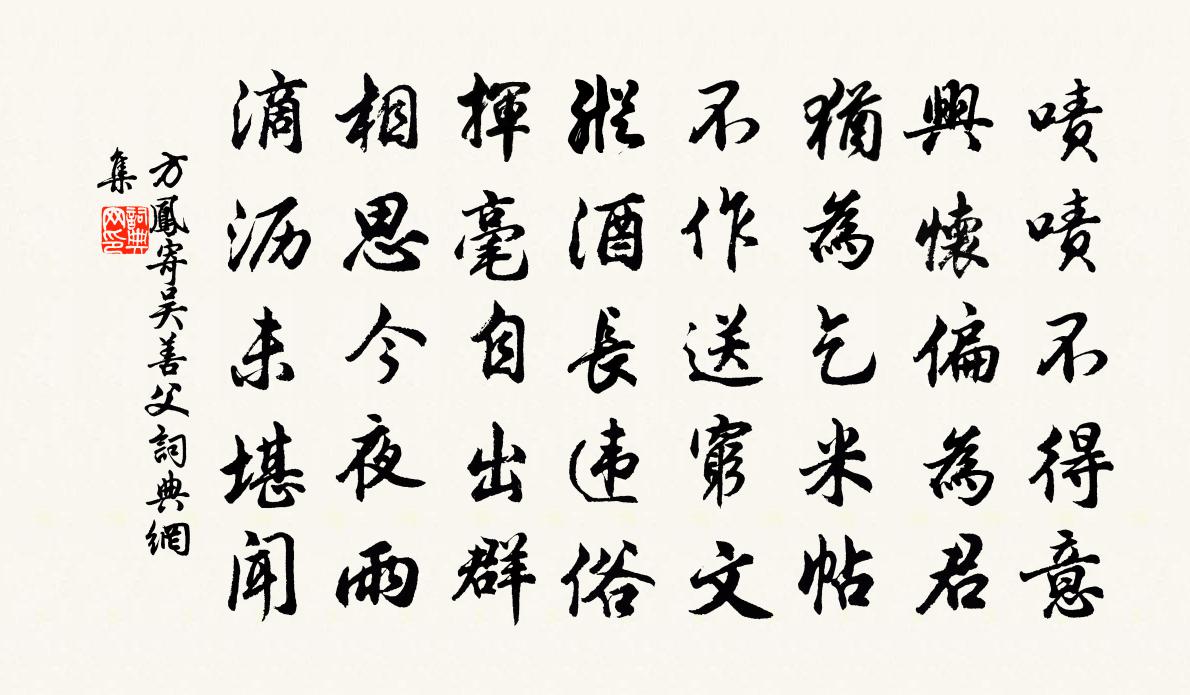 嘖嘖不得意
興懷偏為君
猶為乞米帖
不作送窮文
縱酒長违俗
揮毫自出群
相思今夜雨
滴沥未堪聞
方鳳寄吴善父詞典網
集
詞典網印